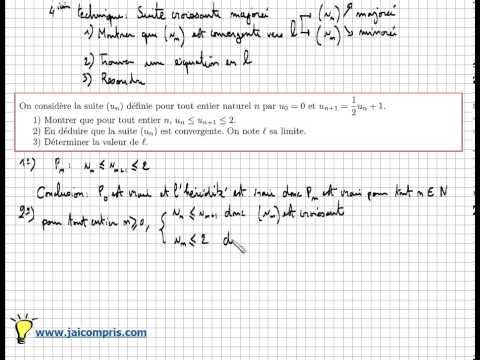 4ième technique: Suite croissante majorée
1) Montrer que (un) est convergente vers l (un) ↗ majorée
(un) ↘ minorée
2) Trouver une équation en l
3) Resoudre
On considère la suite (un) définie pour tout entier naturel n par u0 = 0 et un+1 = 1/2 un + 1.
1) Montrer que pour tout entier n, un ≤ un+1 ≤ 2.
2) En déduire que la suite (un) est convergente. On note ℓ sa limite.
3) Déterminer la valeur de ℓ.
1°) Pn: un ≤ un+1 ≤ 2
Conclusion: P0 est vraie et l'hérédité est vraie donc Pn est vrai pour tout n ∈ N
2°) pour tout entier n ≥ 0, { un ≤ un+1 donc (un) est croissante
un ≤ 2 d
www.jaicompris.com